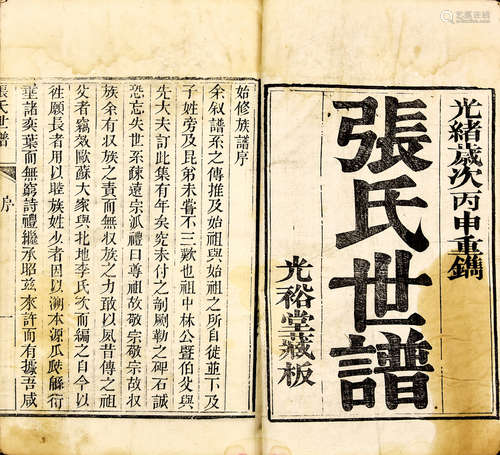 光緒歲次丙申重鐫
張氏世譜
光裕堂藏板
始修族譜序
余叙譜系之傳推及始祖與始祖之所自徙並下及
子姓旁及昆弟未嘗不三歎也祖中林公暨伯父與
先大夫訂此集有年矣究未付之剞劂勒之碑石誠
恐忘失世系疎遠宗派禮曰尊祖故敬宗敬宗故收
族余有収族之責而無収族之力敢以夙昔傳之祖
父者竊效歐蘇大家與北地李氏次而編之自今以
徃願長者用以睦族姓少者因以溯本源瓜瓞緜衍
華諸奕葉而無窮詩禮繼承昭茲來許而有據吾咸
張氏世譜
序